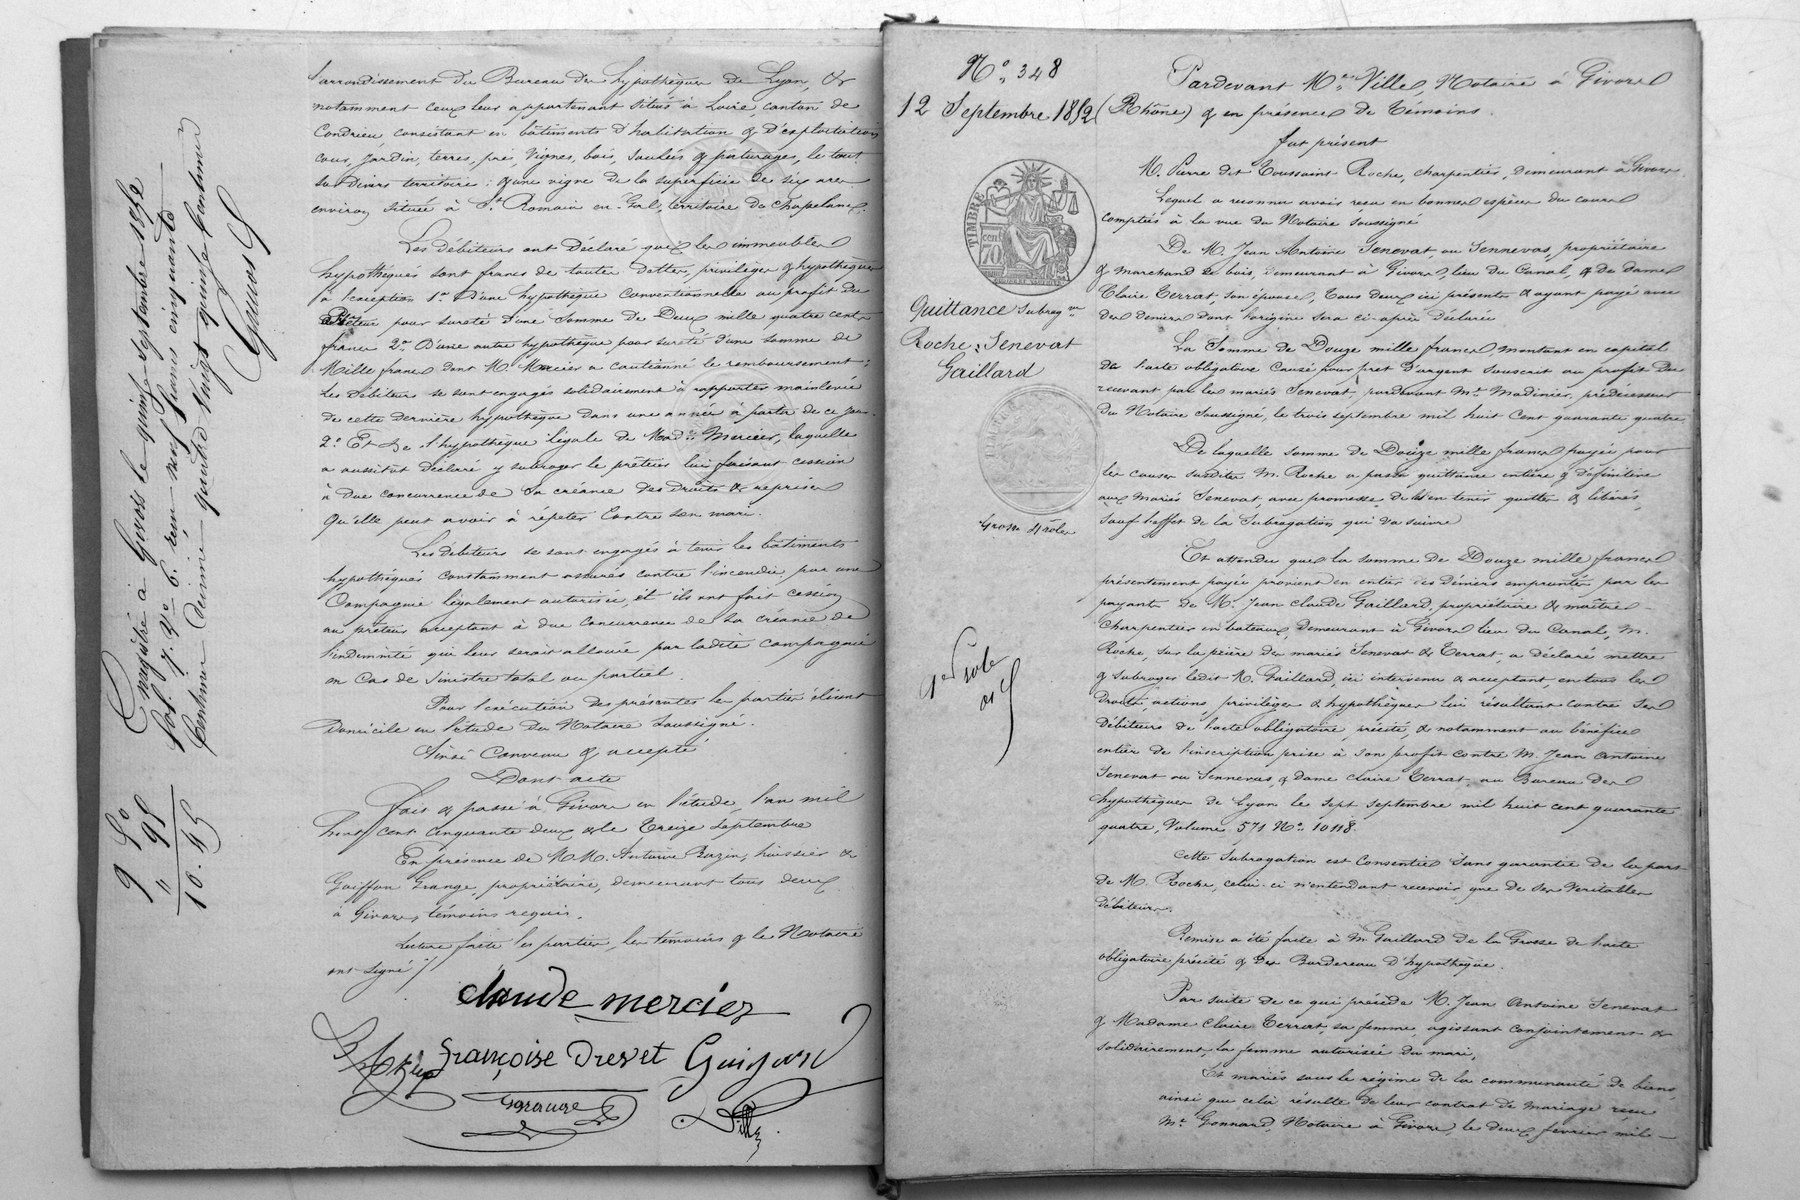 l'arrondissement du Bureau des hypothèques de Lyon, &
notamment ceux leur appartenant situés à Loire, canton de
Condrieu consistant en bâtiments d'habitation & d'exploitation
cour, jardin, terres, prés, vignes, bois, saulées & pâturages, le tout
sur divers territoire; & une vigne de la superficie de six ares
environ située à St Romain en Gal, territoire du Chapelang.
Les débiteurs ont déclaré que les immeubles
hypothéqués sont francs de toutes dettes, privilèges & hypothèques
à l'exception 1º D'une hypothèque conventionnelle au profit du
prêteur pour sureté d'une somme de Deux mille quatre cents
francs 2º D'une autre hypothèque pour sureté d'une somme de
Mille francs dont M. Mercier a cautionné le remboursement;
Les débiteurs se sont engagés solidairement à rapporter mainlevée
de cette dernière hypothèque dans une année à partir de ce jour.
2º Et de l'hypothèque légale de Made Mercier, laquelle
a aussitôt déclaré y subroger le prêteur lui faisant cession
à due concurrence de sa créance des droits & reprises
qu'elle peut avoir à répéter contre son mari.
Les débiteurs se sont engagés à tenir les bâtiments
hypothéqués constamment assurés contre l'incendie par une
Compagnie légalement autorisée, et ils ont fait cession
au prêteur acceptant à due concurrence de sa créance de
l'indemnité qui leur serait allouée par ladite compagnie
en cas de sinistre total ou partiel.
Pour l'exécution des présentes les parties élisent
domicile en l'étude du Notaire soussigné.
Ainsi convenu & accepté
Dont acte
Fait & passé à Givors en l'étude, l'an mil
huit cent cinquante deux & le treize septembre
En présence de M.M. Antoine Bazin, huissier &
Goiffon Grange, propriétaire, demeurant tous deux
à Givors, témoins requis.
Lecture faite les parties, les témoins & le Notaire
ont signé /.
claude mercier
françoise Drevet
Ville
Enregistré à Givors le quinze septembre 1852
fol. 7. Vº c. 6. reçu neuf francs cinquante
Centimes décime quatre vingt quinze centimes
9 50
" 95
10.45
Nº 348
12 Septembre 1852
TIMBRE
70
Quittance Subrogve
Roche, Senevat
Gaillard
Grosse 4 rôles
Pardevant Me Ville, Notaire à Givors
(Rhône) & en présence de témoins.
fut présent
M. Pierre dit Toussaint Roche, charpentier, demeurant à Givors
Lequel a reconnu avoir reçu en bonnes espèces du cours
comptées à la vue du Notaire soussigné
De M. Jean Antoine Senevat, ou Sennevas, propriétaire
& marchand de bois, demeurant à Givors, lieu du Canal, & de dame
Claire Terrat, son épouse, tous deux ici présents & ayant payé avec
des deniers dont l'origine sera ci-après déclarée
La Somme de Douze mille francs, montant en capital
de l'acte obligatoire causé pour prêt d'argent souscrit au profit du
recevant par les mariés Senevat, pardevant Me Madinier, prédécesseur
du Notaire soussigné, le trois septembre mil huit cent quarante quatre
De laquelle somme de Douze mille francs payée pour
les causes susdites M. Roche a passé quittance entière & définitive
aux mariés Senevat, avec promesse de les en tenir quittes & libérés,
sauf l'effet de la subrogation qui va suivre
Et attendu que la somme de Douze mille francs
présentement payée provient en entier des deniers empruntés par les
payants de M. Jean Claude Gaillard, propriétaire & maître
Charpentier en bateaux, demeurant à Givors lieu du Canal, M.
Roche, sur la prière des mariés Senevat & Terrat, a déclaré mettre
& subroger ledit M. Gaillard, ici intervenu & acceptant, en tous les
droits, actions, privilèges & hypothèques lui résultant contre ses
débiteurs de l'acte obligatoire, précité, & notamment au bénéfice
entier de l'inscription prise à son profit contre M. Jean Antoine
Senevat ou Sennevas, & dame Claire Terrat, au Bureau des
hypothèques de Lyon le sept septembre mil huit cent quarante
quatre, Volume 571 Nº 10118.
Cette subrogation est consentie sans garantie de la part
de M. Roche, celui-ci n'entendant recevoir que de ses véritables
débiteurs.
Remise a été faite à M. Gaillard de la Grosse de l'acte
obligatoire précité & des Bordereau d'hypothèque.
Par suite de ce qui précède M. Jean Antoine Senevat
& Madame Claire Terrat, sa femme, agissant conjointement &
solidairement, la femme autorisée du mari,
Et mariés sous le régime de la communauté de biens
ainsi que celui résulte de leur contrat de mariage reçu
Me Gonnard, Notaire à Givors, le deux février mil